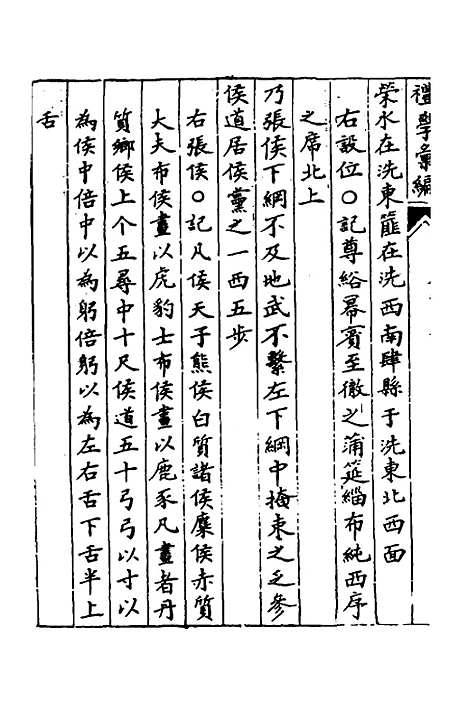 禮學彙編
榮水在洗東篚在洗西南肆縣于洗東北西面
右設位○記尊綌冪賓至徹之蒲筵緇布純西序
之席北上
乃張侯下綱不及地武不繫左下綱中掩束之乏參
侯道居侯黨之一西五步
右張侯○記凡侯天子熊侯白質諸侯麋侯赤質
大夫布侯畫以虎豹士布侯畫以鹿豕凡畫者丹
質鄉侯上个五尋中十尺侯道五十弓弓以寸以
為侯中倍中以為躬倍躬以為左右舌下舌半上
舌